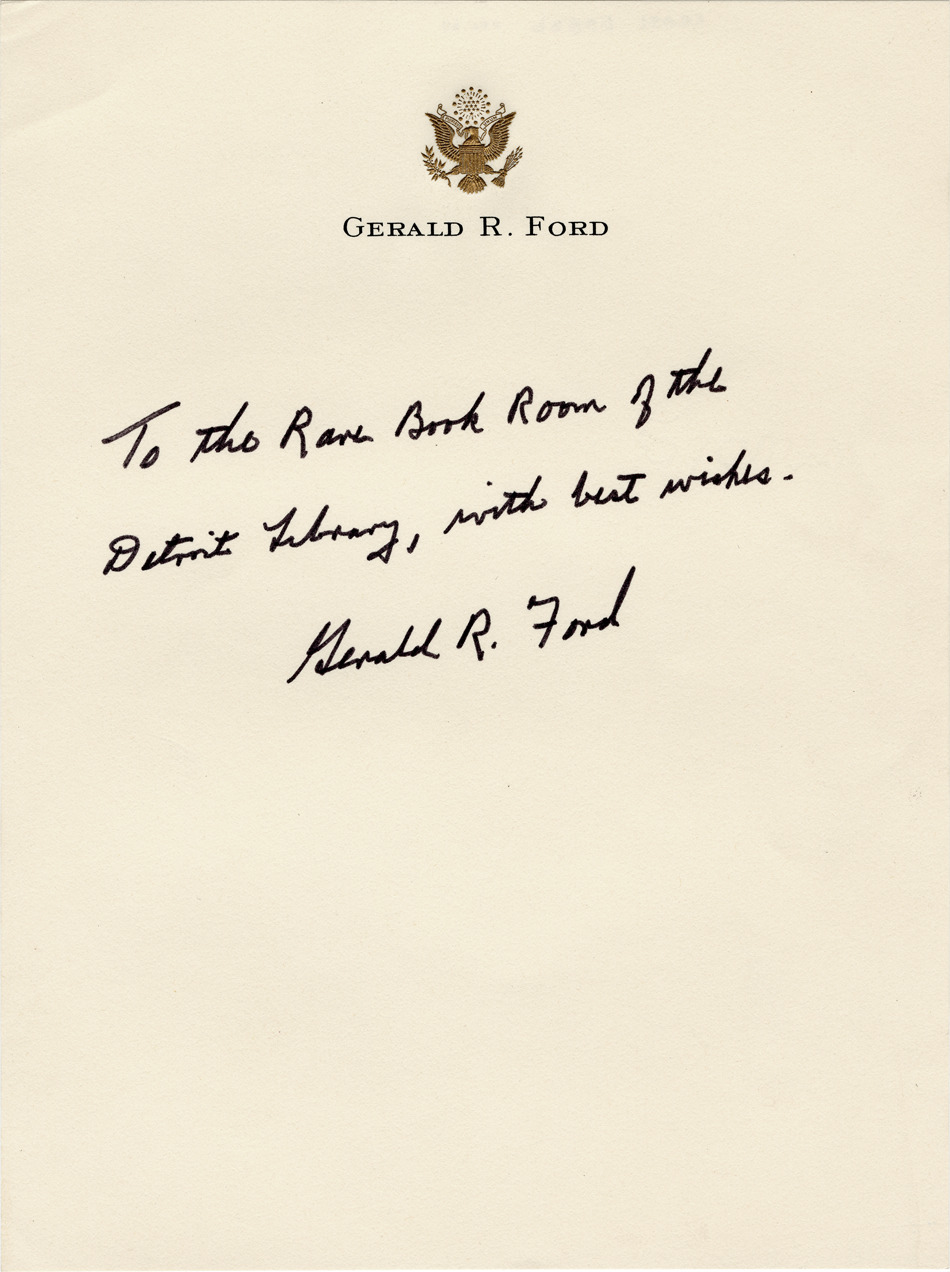 GERALD R. FORD
To the Rare Book Room of the
Detroit Library, with best wishes.
Gerald R. Ford